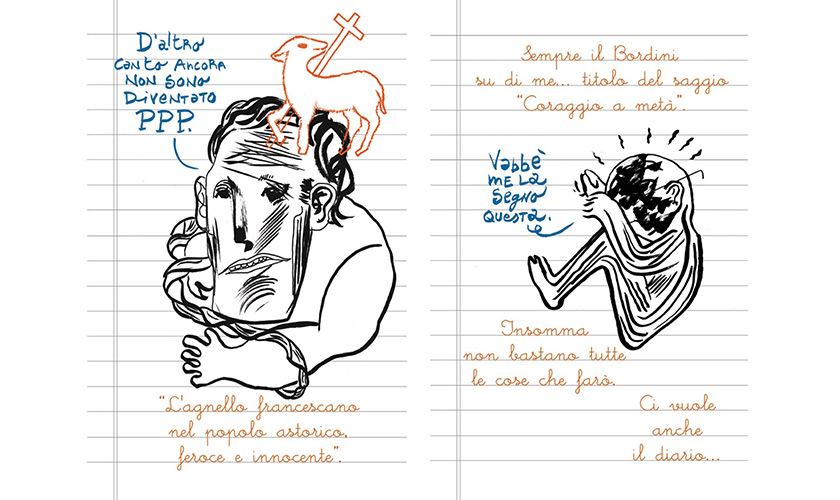 D'altro
canto ancora
non sono
diventato
PPP.
"L'agnello francescano
nel popolo astorico,
feroce e innocente".
Sempre il Bordini
su di me... titolo del saggio
"Coraggio a metà".
Vabbè
me la
segno
questa.
Insomma
non bastano tutte
le cose che farò.
Ci vuole
anche
il diario...